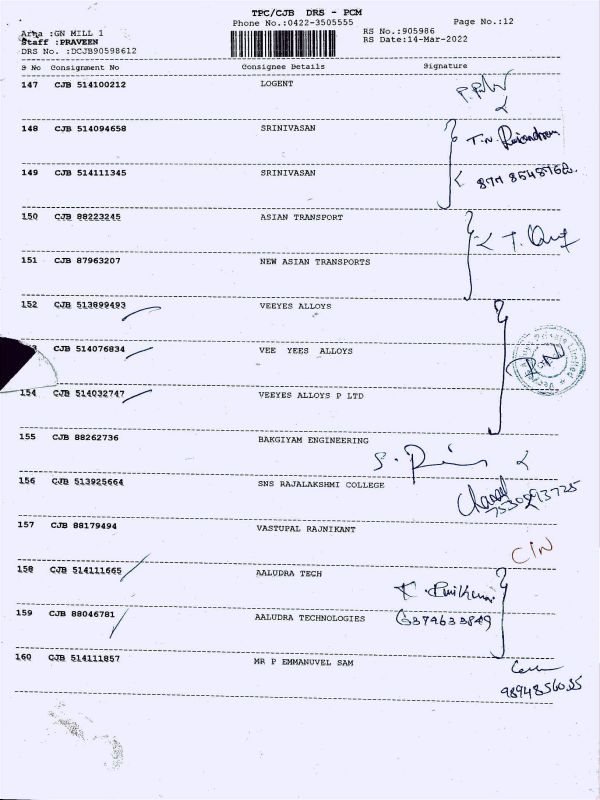 TPC/CJB DRS - PCM
Phone No.:0422-3505555 Page No.:12
Area :GN MILL 1 RS No.:905986
Staff :PRAVEEN RS Date:14-Mar-2022
DRS No. :DCJB90598612
S No Consignment No Consignee Details Signature
147 CJB 514100212 LOGENT
148 CJB 514094658 SRINIVASAN
T.N.
149 CJB 514111345 SRINIVASAN
150 CJB 88223245 ASIAN TRANSPORT
151 CJB 87963207 NEW ASIAN TRANSPORTS
152 CJB 513899493 VEEYES ALLOYS
CJB 514076834 VEE YEES ALLOYS
154 CJB 514032747 VEEYES ALLOYS P LTD
155 CJB 88262736 BAKGIYAM ENGINEERING
156 CJB 513925664 SNS RAJALAKSHMI COLLEGE
157 CJB 88179494 VASTUPAL RAJNIKANT
CIN
158 CJB 514111665 AALUDRA TECH
159 CJB 88046781 AALUDRA TECHNOLOGIES 6374633849
160 CJB 514111857 MR P EMMANUVEL SAM